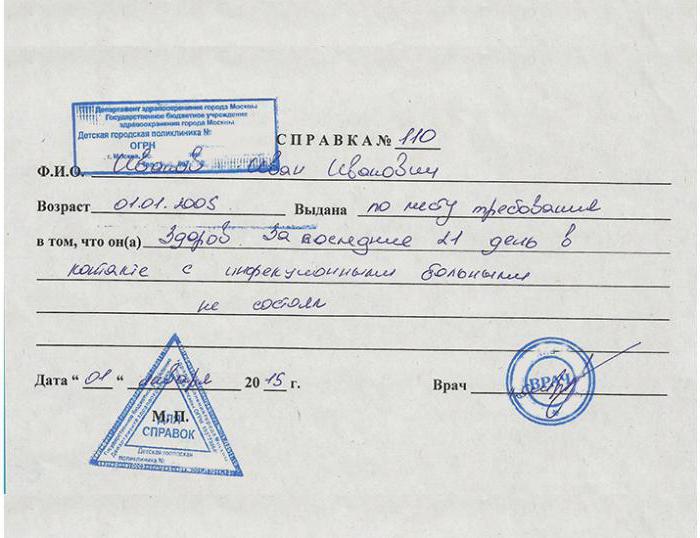 Департамент здравоохранения города Москвы
Государственное бюджетное учреждение
здравоохранения города Москвы
Детская городская поликлиника №
ОГРН
г. Москва,
СПРАВКА № 110
Ф.И.О. Иванов Иван Иванович
Возраст 01.01.2005 Выдана по месту требования
в том, что он(а) Здоров. За последние 21 день в
контакте с инфекционными больными
не состоял
Дата “ 01 “ января 20 15 г. Врач
ВРАЧ
М.П.
ДЛЯ
СПРАВОК
Детская городская
поликлиника №